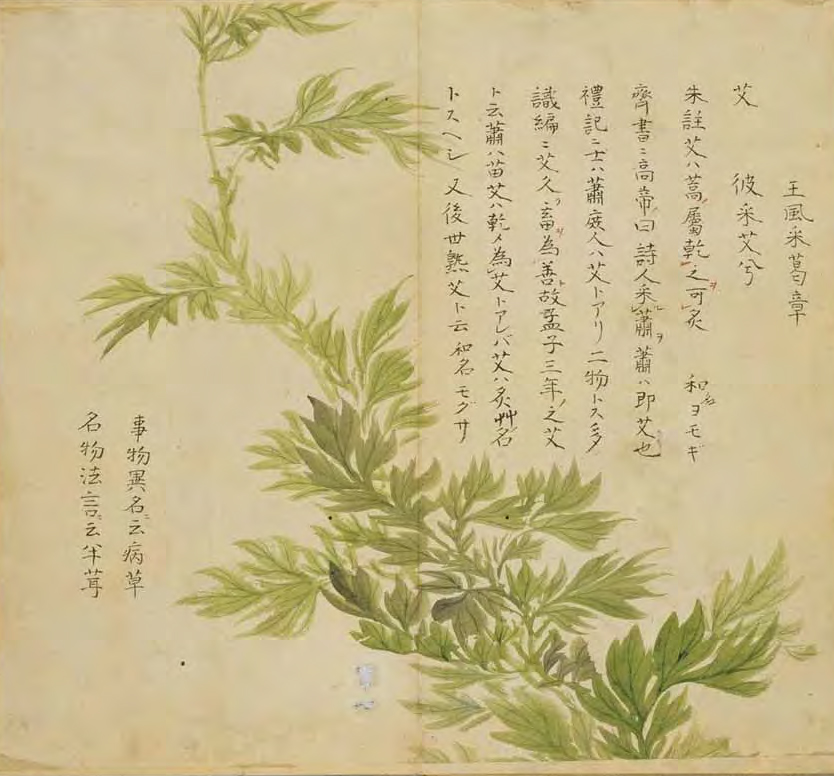 王風采葛章
艾　彼采艾兮
朱註艾ハ蒿屬乾之可灸　和名ヨモギ
齊書ニ高帝曰詩人采蕭蕭ハ即艾也
禮記ニ士ハ蕭庶人ハ艾トアリ二物トス多
識編ニ艾久ク畜為善故孟子三年之艾
ト云蕭ハ苗艾ハ乾メ為艾トアレバ艾ハ灸艸名
トスヘシ又後世熟艾ト云和名モグサ
事物異名ニ云病草
名物法言ニ云半茸